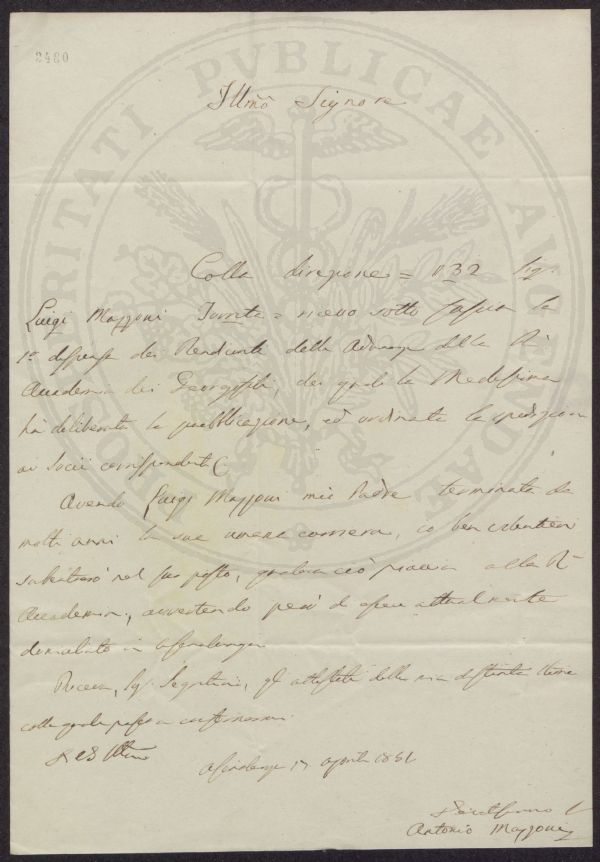 8480
PROSPERITATI PVBLICAE AVGENDAE
Illmo Signore
Colla direzione = 132 Sig:
Luigi Mazzoni = ricevo sotto fascia la
1a dispensa dei Rendiconti delle Adunanze della R.
Accademia dei Georgofili, dei quali la Medesima
ha deliberata la pubblicazione, ed ordinata la spedizione
ai Socii corrispondenti
Avendo Luigi Mazzoni mio Padre terminata da
molti anni la sua carriera, io ben volentieri
nel suo posto, qualora ciò piaccia alla R.
Accademia, avvertendo però di essere attualmente
domiciliato in
Riceva, Sig. Segretario, gli attestati della mia distinta stima
colla quale passo a confermarmi
17 aprile 1861
Antonio Mazzoni